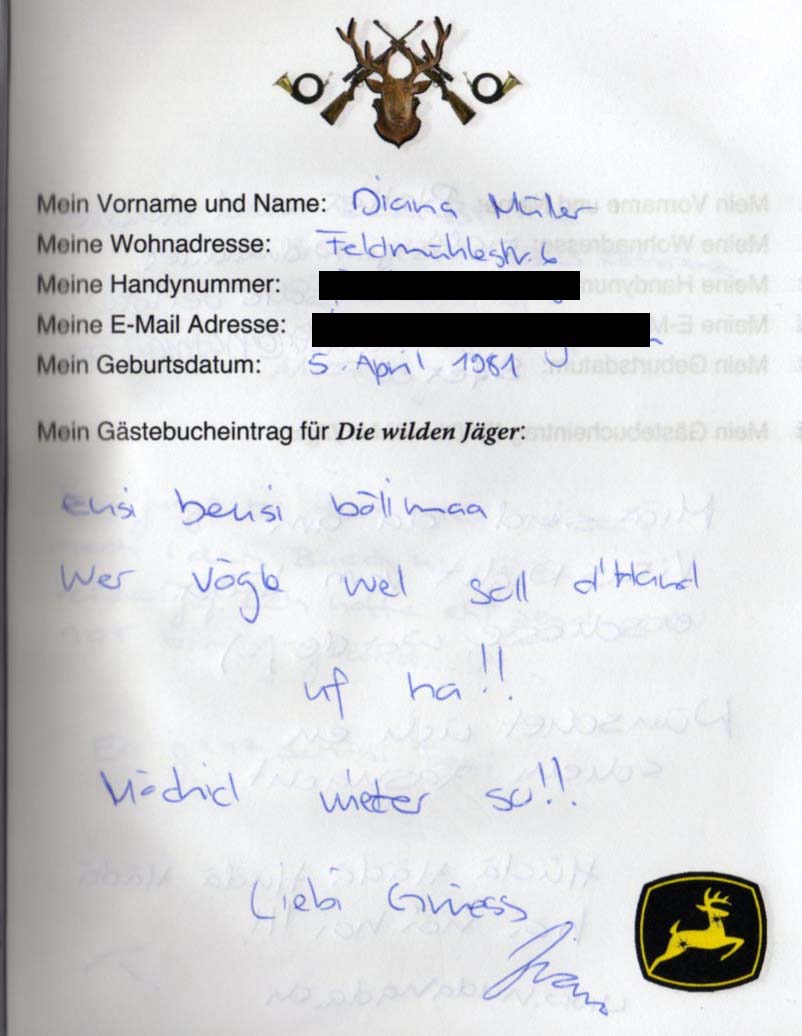 Mein Vorname und Name: Diana Müller
Meine Wohnadresse: Feldmühlestr. 6
Meine Handynummer:
Meine E-Mail Adresse:
Mein Geburtsdatum: 5. April 1981
Mein Gästebucheintrag für Die wilden Jäger:
ensi bensi bölimaa
Wer vögle wel söll d'Hand
uf ha!!
Mached wieter so!!
Liebi Grüess